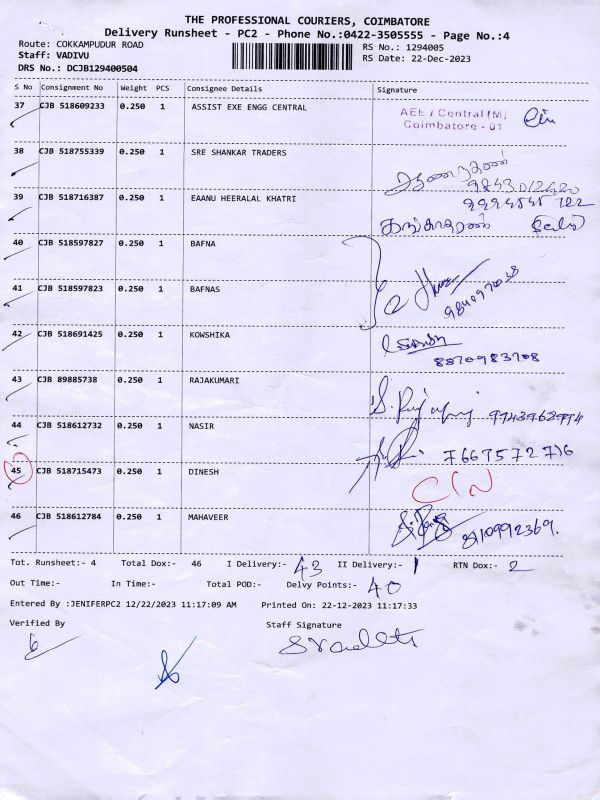 THE PROFESSIONAL COURIERS, COIMBATORE
Delivery Runsheet - PC2 - Phone No.:0422-3505555 - Page No.:4
Route: COKKAMPUDUR ROAD
RS No.: 1294005
Staff: VADIVU
RS Date: 22-Dec-2023
DRS No.: DCJB129400504
S No Consignment No Weight PCS Consignee Details Signature
37 CJB 518609233 0.250 1 ASSIST EXE ENGG CENTRAL
AEE / Central (M)
Coimbatore - 01
38 CJB 518755339 0.250 1 SRE SHANKAR TRADERS
39 CJB 518716387 0.250 1 EAANU HEERALAL KHATRI
40 CJB 518597827 0.250 1 BAFNA
41 CJB 518597823 0.250 1 BAFNAS
42 CJB 518691425 0.250 1 KOWSHIKA
8870983708
43 CJB 89885738 0.250 1 RAJAKUMARI
44 CJB 518612732 0.250 1 NASIR
7667572716
45 CJB 518715473 0.250 1 DINESH
46 CJB 518612784 0.250 1 MAHAVEER
Tot. Runsheet:- 4 Total Dox:- 46 I Delivery:- 43 II Delivery:- 1 RTN Dox:- 2
Out Time:- In Time:- Total POD:- Delvy Points:- 40
Entered By :JENIFERPC2 12/22/2023 11:17:09 AM Printed On: 22-12-2023 11:17:33
Verified By Staff Signature